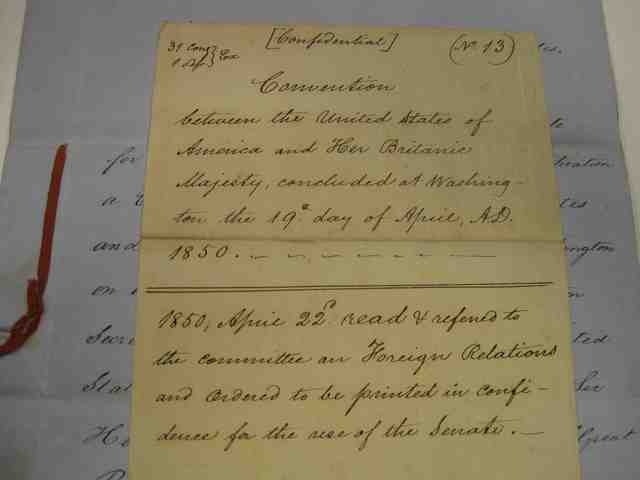 [Confidential]
(No 13)
31 Cong
1 Ses
Convention
between the United States of
America and Her Britanic
Majesty, concluded at Washing-
ton the 19th day of April, A.D.
1850.
1850, April 22d read & refered to
the committee on Foreign Relations
and ordered to be printed in confi-
dence for the use of the Senate.
for
a
and
on